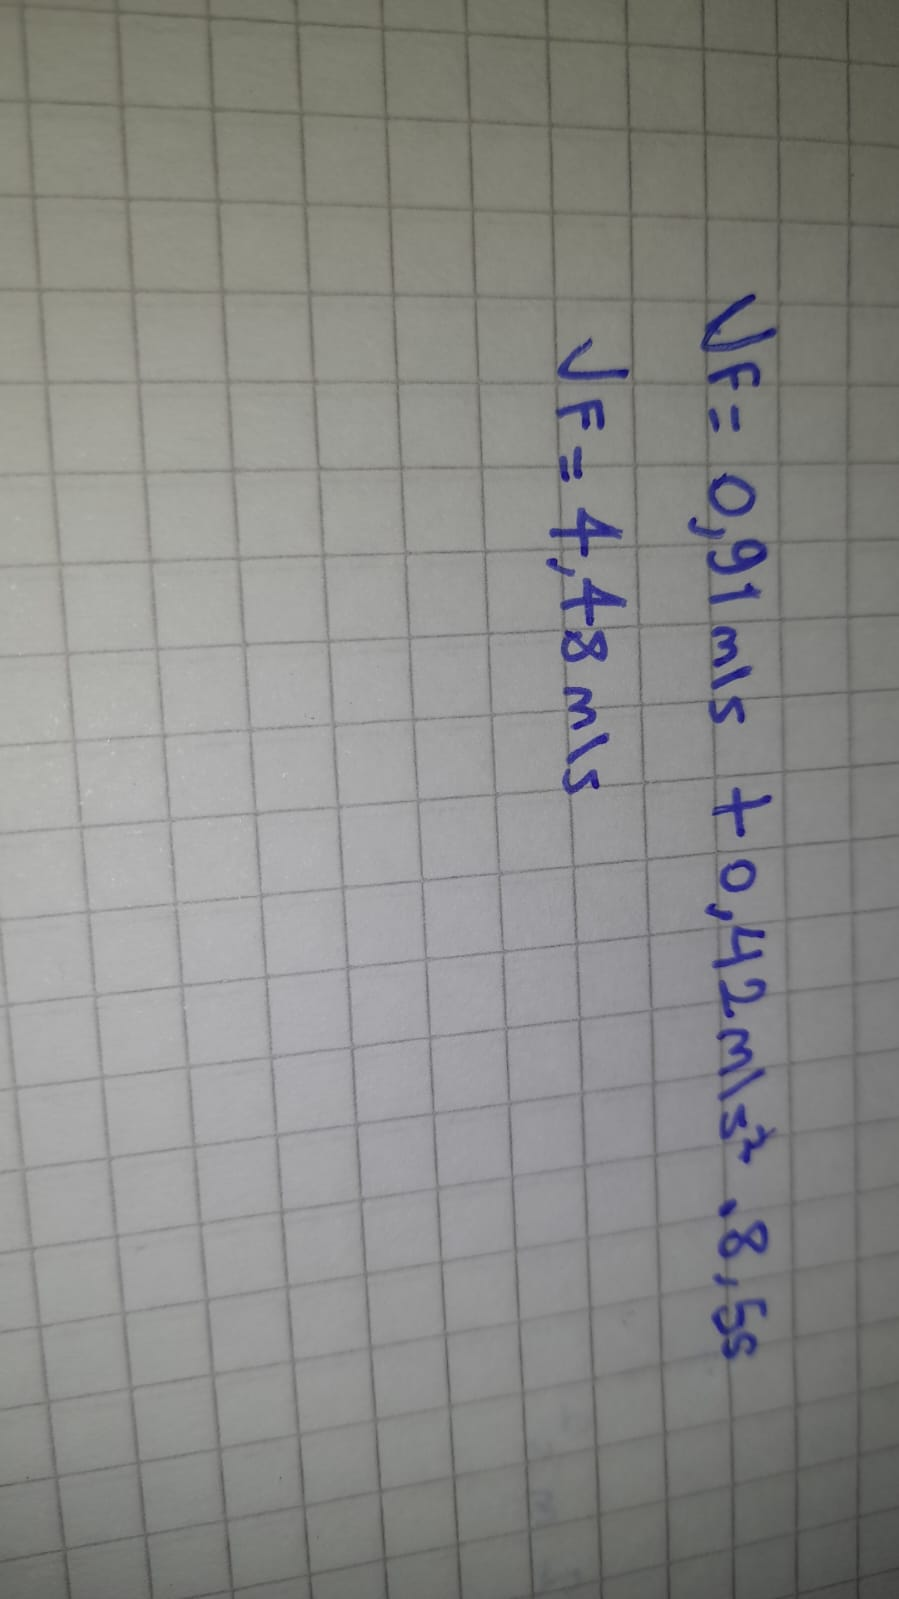 VF = 0,91 m/s + 0,42 m/s² . 8,5s
VF = 4,48 m/s